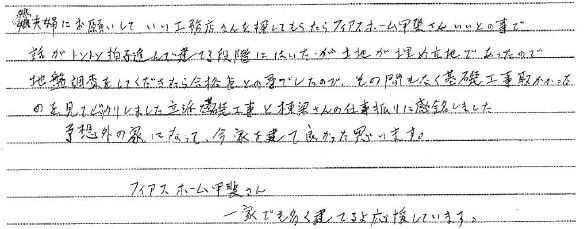 夫婦にお願いして いい工務店さんを探してもらたらフィアスホーム甲斐さんいいとの事で
話がトントン拍子進んで建てる段階にはいたが土地が埋め立地であったので
地盤調査をしてくださたら合格点との事でしたので、その間もなく基礎工事取かかった
のを見てびっくりしました立派基礎工事と棟梁さんの仕事振りに感銘しました
予想外の家になって、今家を建て良かった思います。
フィアスホーム甲斐さん
一家でも多く建てるよ応援しています。